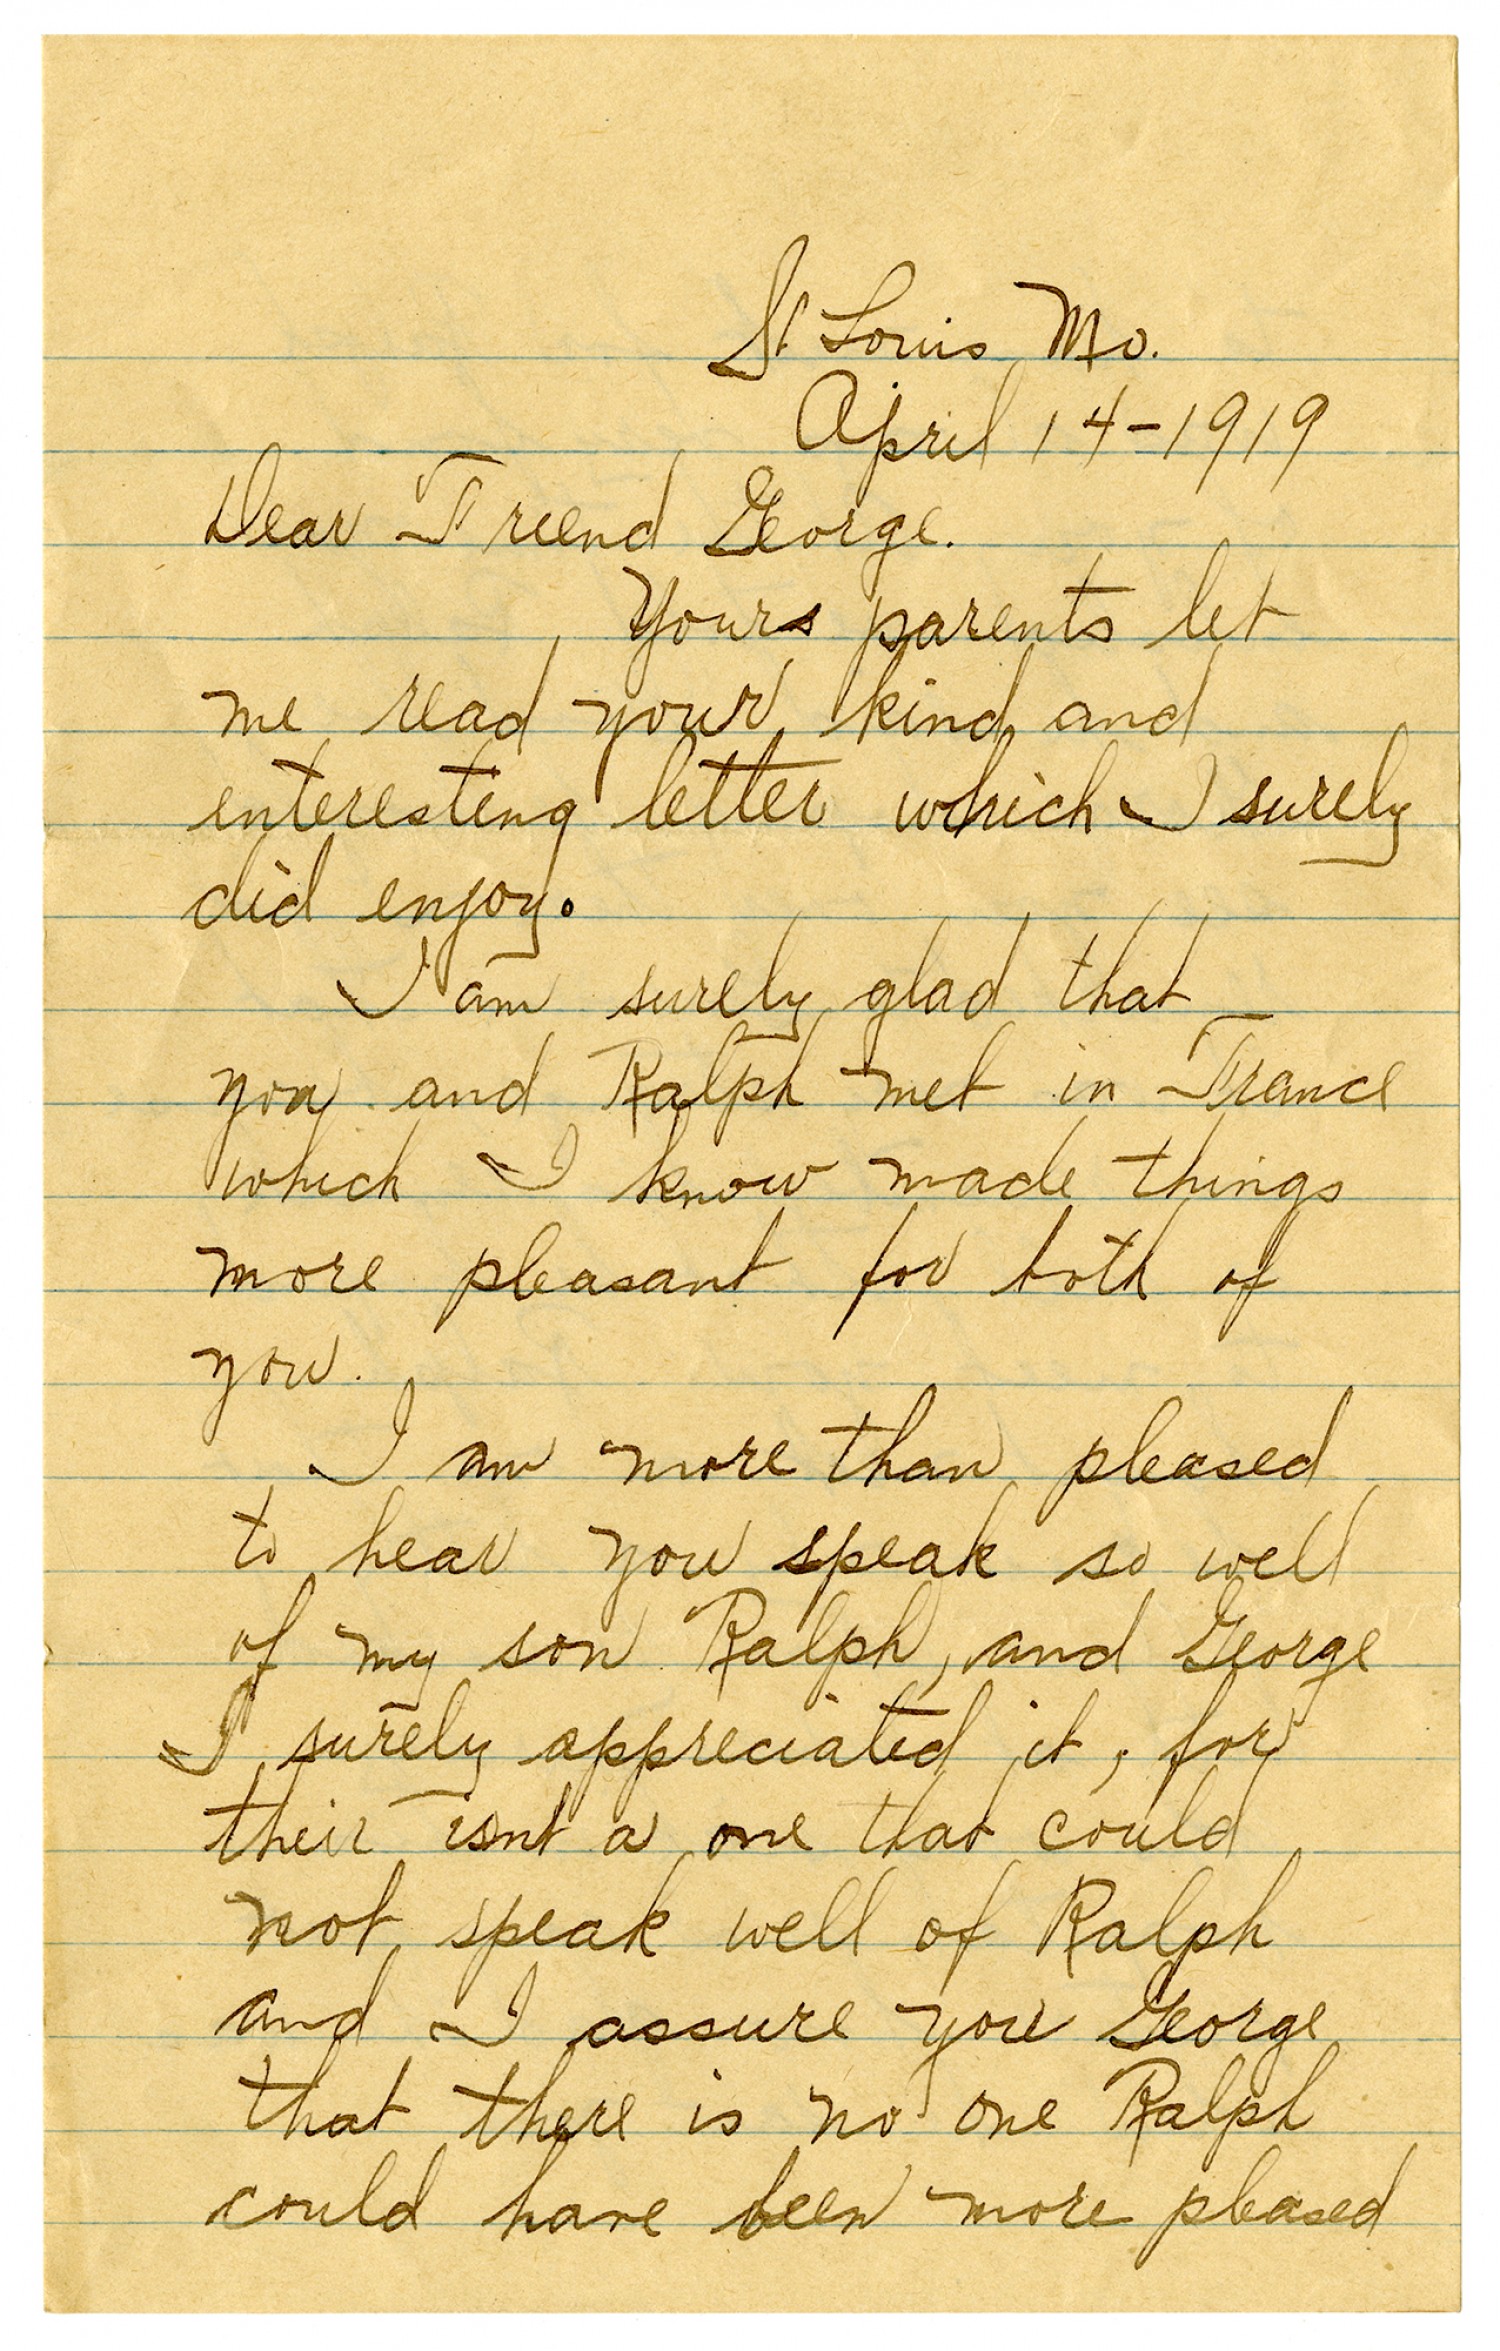 St Louis Mo.
April 14-1919
Dear Friend George.
Yours parents let
me read your kind and
enteresting letter which I surely
did enjoy.
I am surely glad that
you and Ralph met in France
which I know made things
more pleasant for both of
you.
I am more than pleased
to hear you speak so well
of my son Ralph, and George
I surely appreciated it, for
their isnt a one that could
not speak well of Ralph
and I assure you George
that there is no one Ralph
could have been more pleased